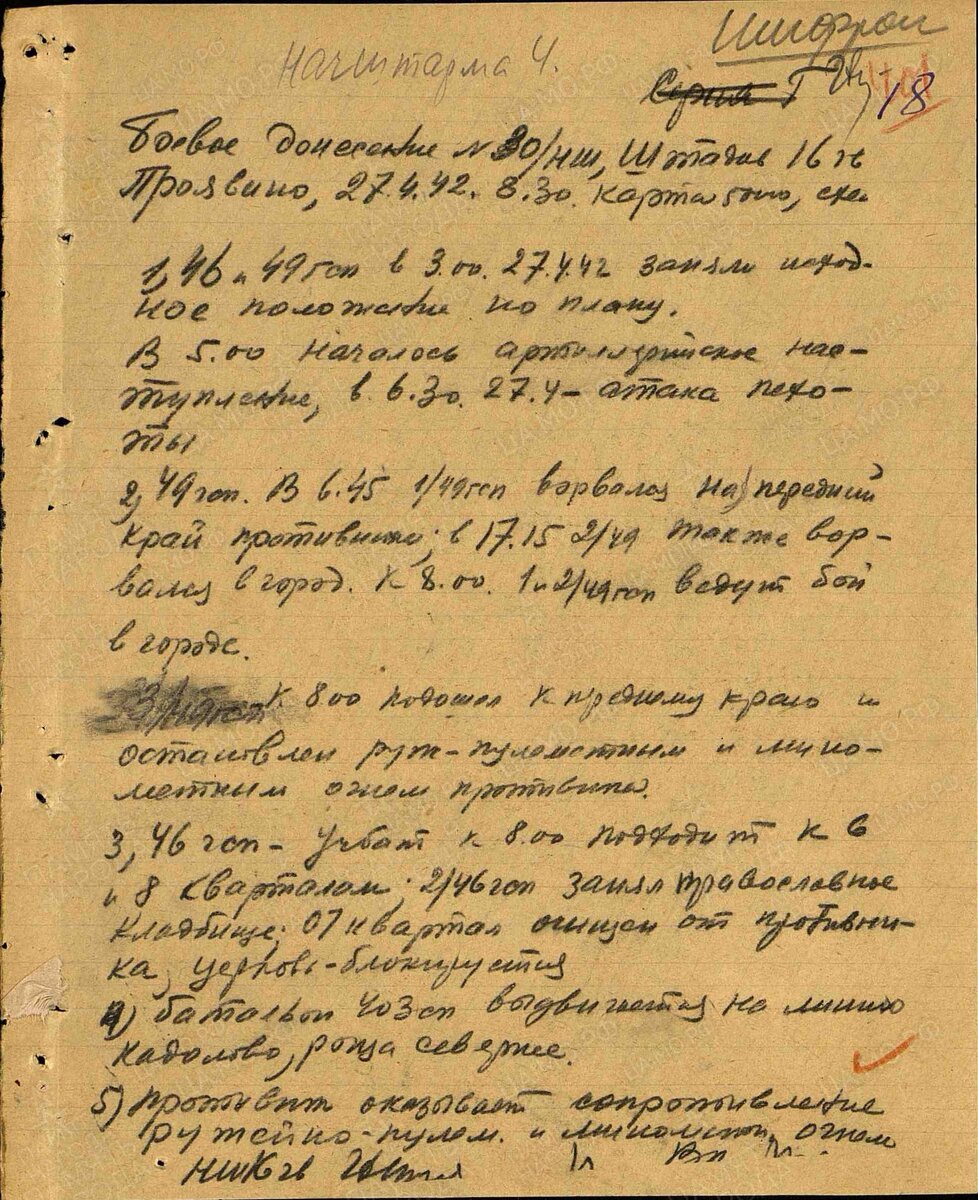 Шифром
Начштарма 4.
Серия Г
18
Боевое донесение №30/нш, Штадив 16 гв
27.4.42. 8.30. карта 50000, схе
1, 46 и 49 гсп в 3.00. 27.4.42 заняли исход-
ное положение по плану.
В 5.00 началось артиллерийское нас-
тупление, в 6.30. 27.4 - атака пехо-
ты
2, 49 гсп. В 6.45 1/49 гсп ворвался на передний
край противника; в 17.15 2/49 также вор-
вался в город. К 8.00. 1 и 2/49 гсп ведут бой
в городе.
3/49 гсп К 8.00 подошел к переднему краю и
остановлен руж-пулеметным и мино-
метным огнем противника.
3, 46 гсп - Учбат к 8.00 подходит к 6
и 8 кварталам; 2/46 гсп занял православное
кладбище; 07 квартал очищен от противни-
ка, церковь-блокируется
4) батальон 403 сп выдвигается на линию
Кадолово, роща севернее.
5) Противник оказывает сопротивление
ружейно-пулем. и миномет. огнем